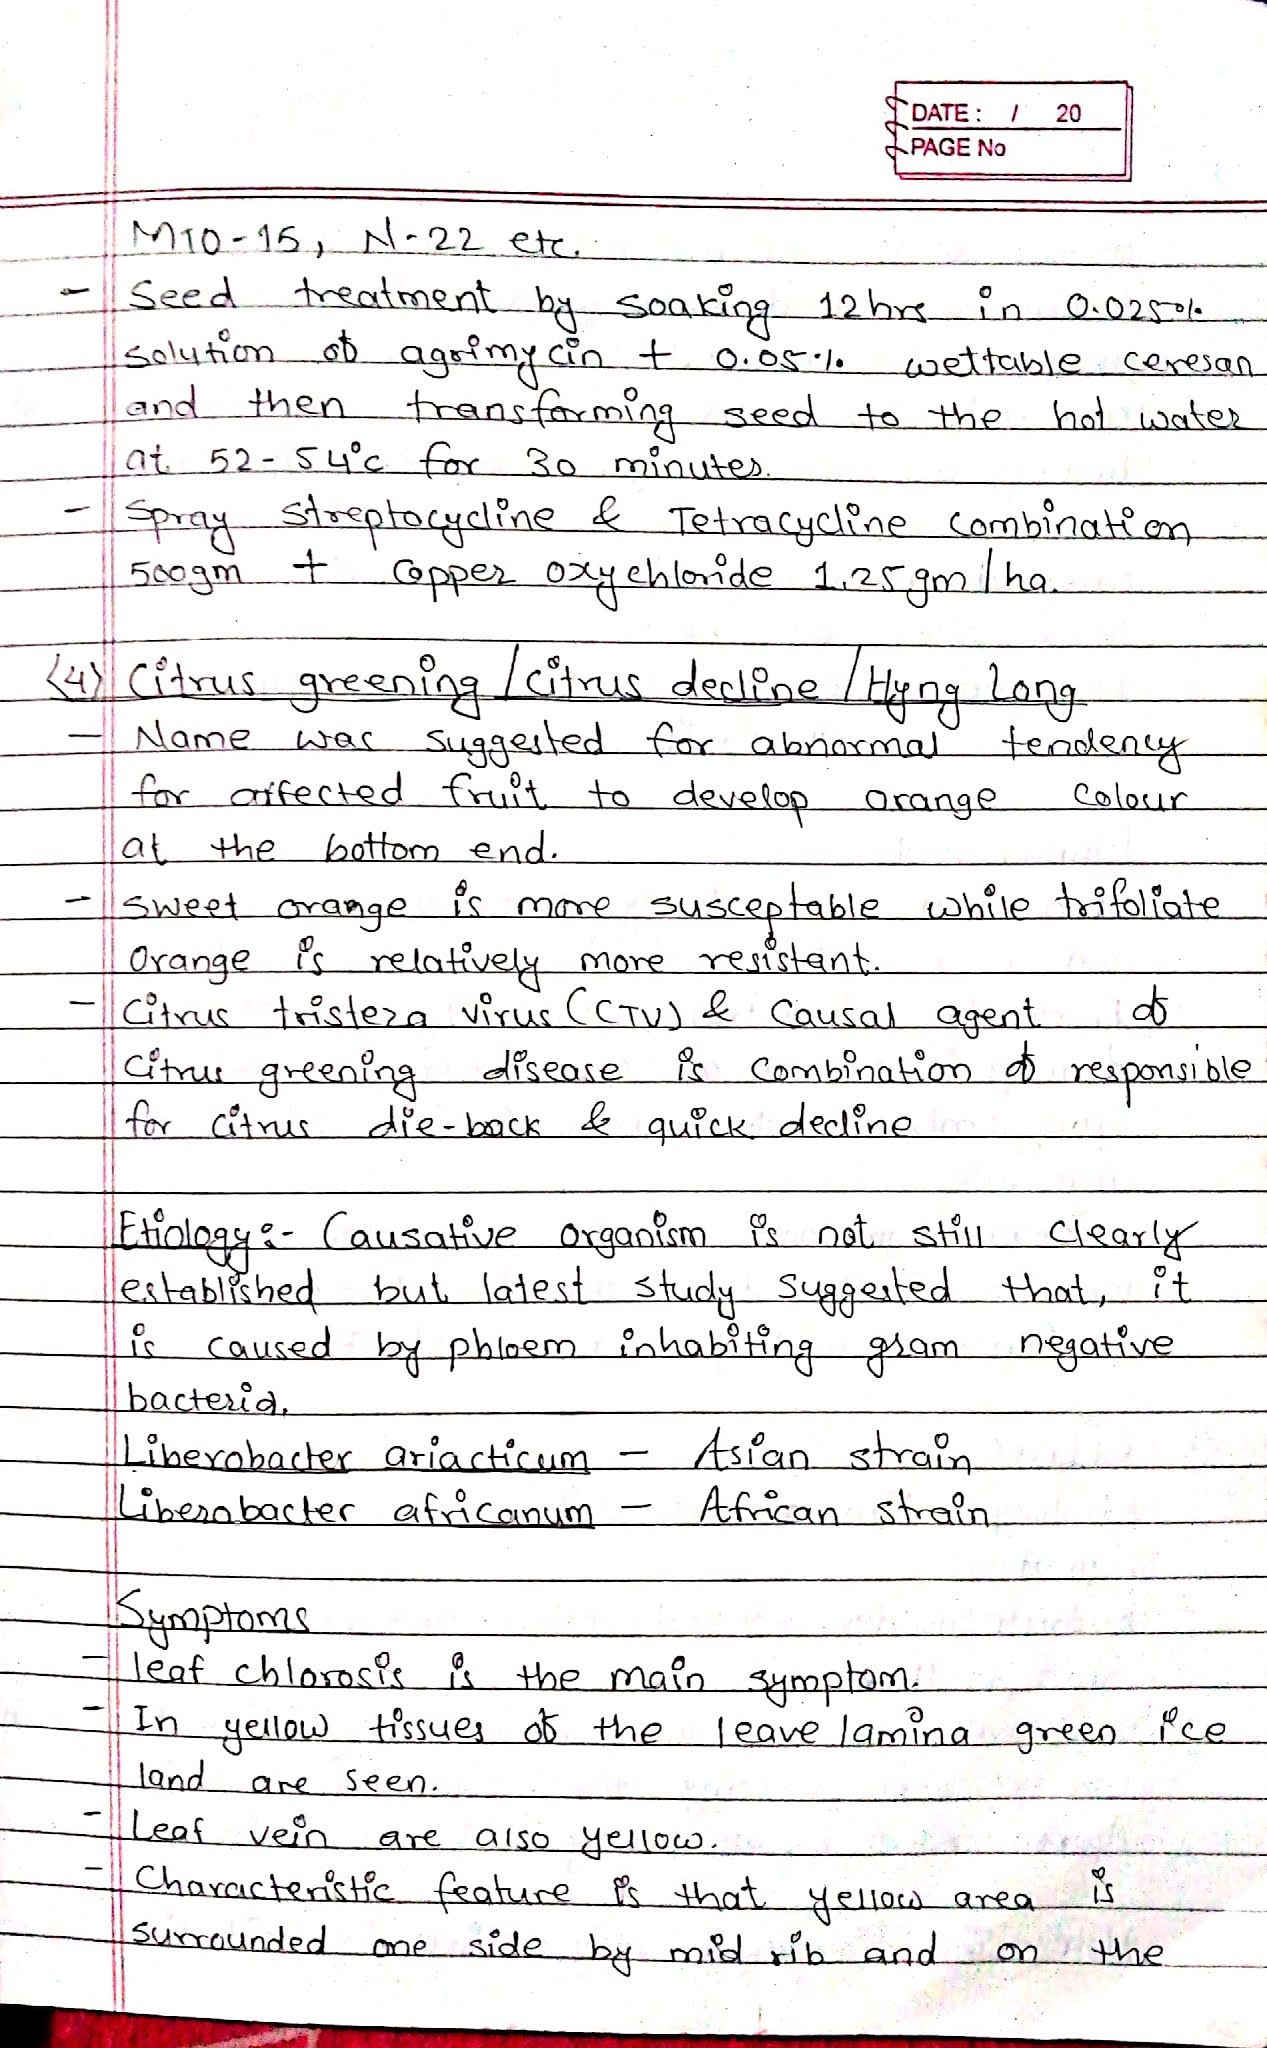 DATE : / 20
PAGE No
MTO-15, N-22 etc.
- Seed treatment by soaking 12hrs in 0.025%
solution of agrimycin + 0.05% wettable ceresan
and then transforming seed to the hot water
at 52-54°c for 30 minutes.
- Spray streptocycline & Tetracycline combination
500gm + Copper oxychloride 1.25gm/ha.
(4) Citrus greening / Citrus decline / Hyng Long
- Name was suggested for abnormal tendency
for affected fruit to develop orange colour
at the bottom end.
- sweet orange is more susceptable while trifoliate
orange is relatively more resistant.
- Citrus tristeza virus (CTV) & Causal agent of
Citrus greening disease is combination of responsible
for citrus die-back & quick decline
Etiology:- Causative organism is not still clearly
established but latest study suggested that, it
is caused by phloem inhabiting gram negative
bacteria.
Liberobacter ariacticum - Asian strain
Liberobacter africanum - African strain
Symptoms
- leaf chlorosis is the main symptom.
- In yellow tissues of the leave lamina green ice
land are seen.
- Leaf vein are also yellow.
- Characteristic feature is that yellow area is
surrounded one side by mid rib and on the